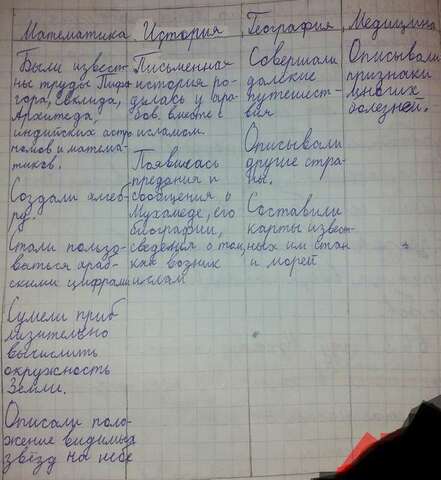 Математика
Были извест-
ны труды Пифа-
гора, Евклида,
Архимеда,
индийских астро
номов и матема-
тиков.
Создали алгеб-
ру.
Стали пользо-
ваться араб-
скими цифрами
Сумели приб
лизительно
вычислить
окружность
Земли.
Описали поло-
жение видимых
звёзд на небе
История
Письменная
история ро-
дилась у ара-
бов. вместе с
исламом.
Появилась
предания и
сообщения о
Мухамеде, его
биографии,
сведения о том,
как возник
ислам
География
Совершали
далёкие
путешест-
вия
Описывали
другие стра-
ны.
Составили
карты извест-
ных им стан
и морей
Медицина
Описывали
признаки
многих
болезней.